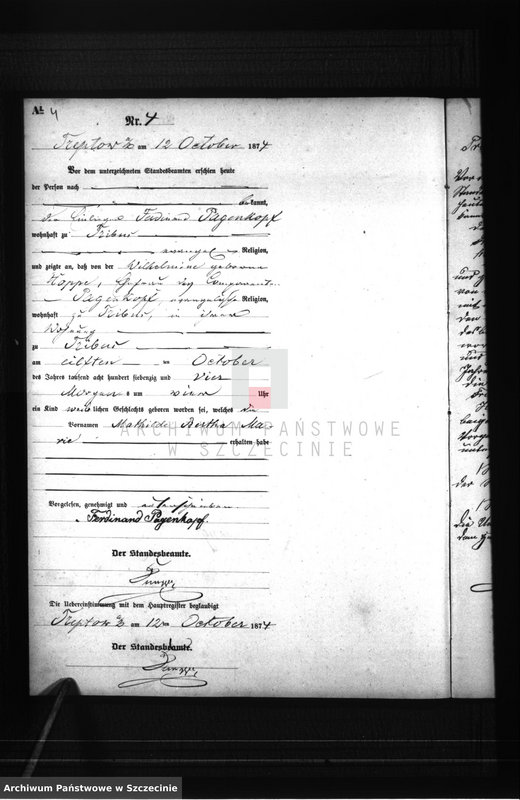 A 4
Nr. 4
Treptow a/R am 12 October 1874
Vor dem unterzeichneten Standesbeamten erschien heute
der Person nach
bekannt,
Ferdinand Pagenkopf
wohnhaft zu Tribus
evangel Religion,
und zeigte an, daß von der Wilhelmine geborene
Hoppe, Ehefrau des Comparenten
Pagenkopf, evangelische Religion,
wohnhaft zu Tribus, in ihrer
Wohnung
zu Tribus
am eilften October
des Jahres tausend acht hundert siebenzig und vier
Morgens um vier Uhr
ein Kind weiblichen Geschlechts geboren worden sei, welches die
Vornamen Mathilde Bertha Ma-
rie erhalten habe
Vorgelesen, genehmigt und unterschrieben
Ferdinand Pagenkopf.
Der Standesbeamte.
Die Uebereinstimmung mit dem Hauptregister beglaubigt
Treptow a/R am 12ten October 1874
Der Standesbeamte.
ARCHIWUM PAŃSTWOWE
W SZCZECINIE
Archiwum Państwowe w Szczecinie